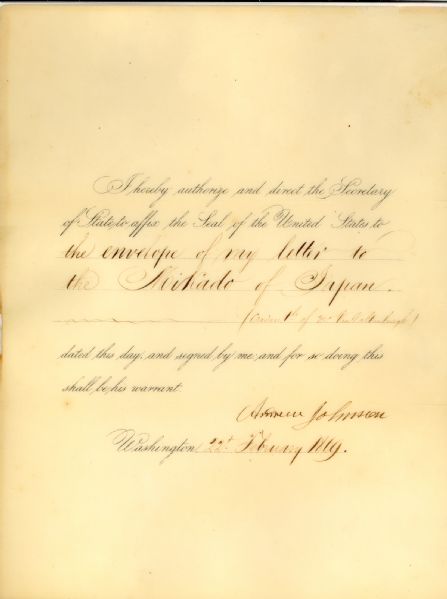 I hereby authorize and direct the Secretary
of State to affix the Seal of the United States to
the envelope of my letter to
the Mikado of Japan.
of
dated this day, and signed by me, and for so doing this
shall be his warrant.
Andrew Johnson
Washington, 22d February 1869.